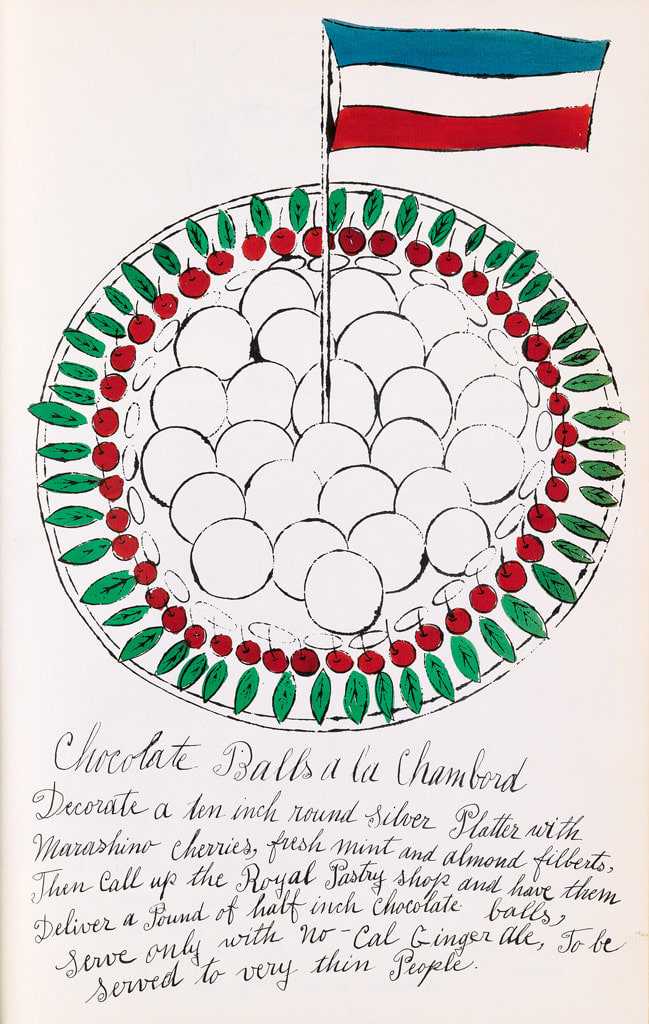 Chocolate Balls a la Chambord
Decorate a ten inch round silver Platter with
Marashino cherries, fresh mint and almond filberts,
Then call up the Royal Pastry shop and have them
Deliver a Pound of half inch chocolate balls,
serve only with no-Cal Ginger Ale, To be
served to very thin People.